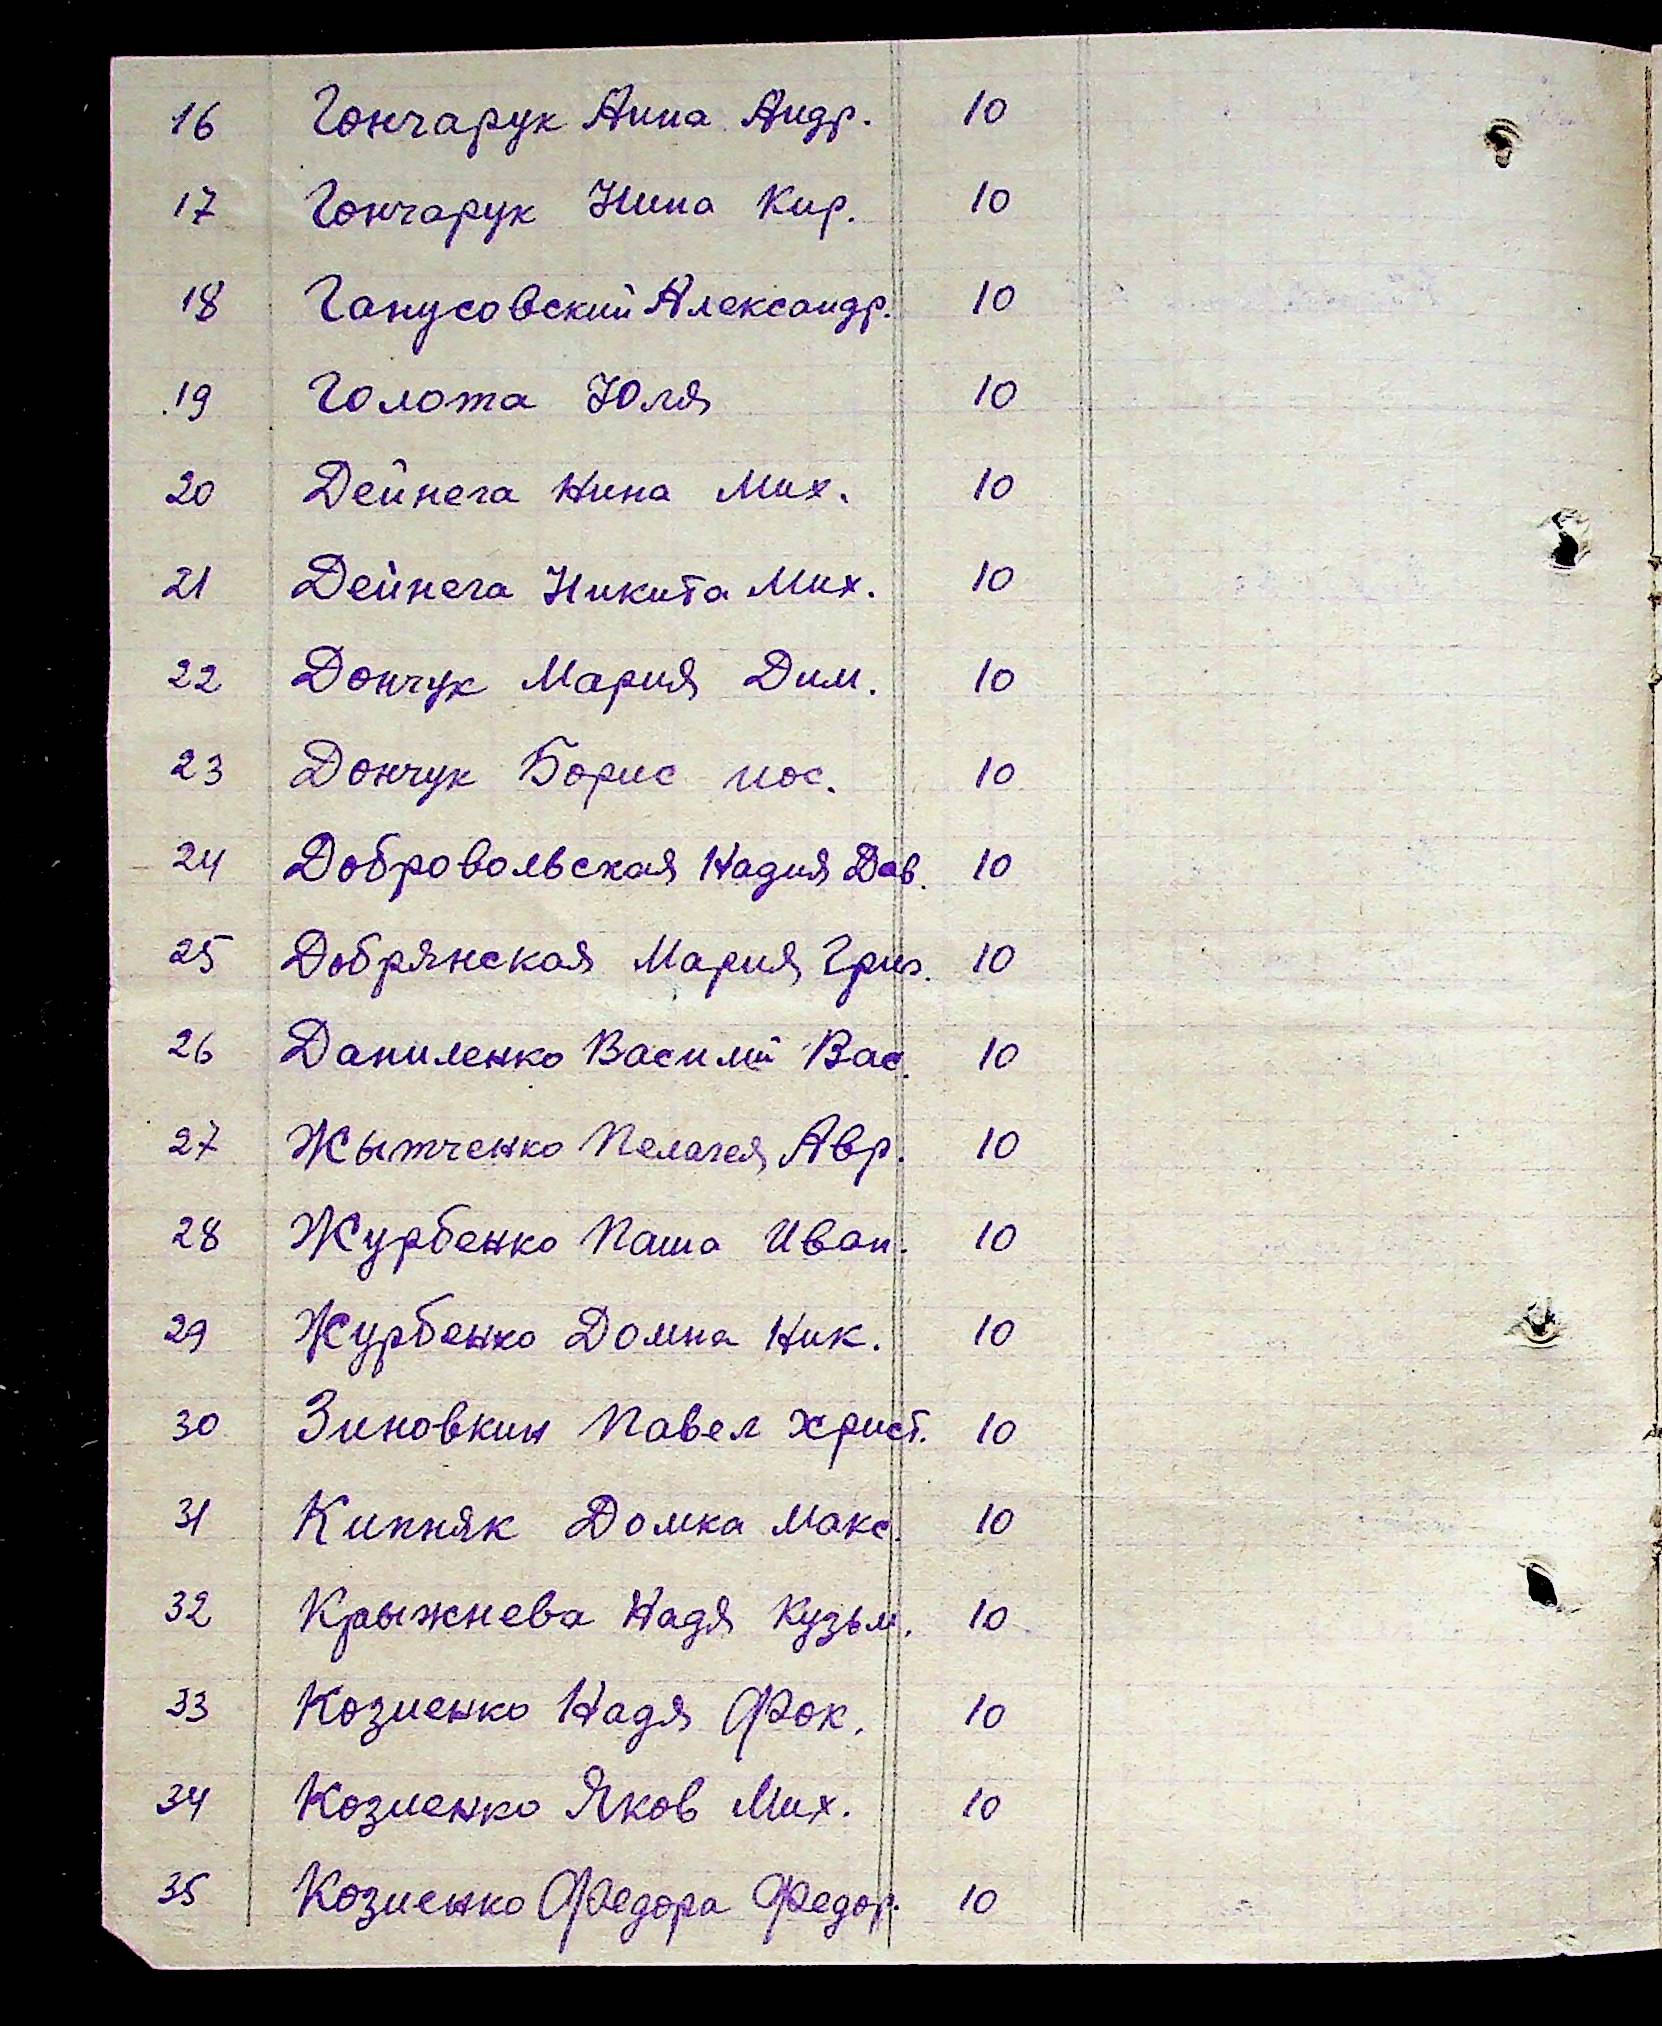 16 Гончарук Анна Андр. 10
17 Гончарук Нина Кир. 10
18 Ганусовский Александр. 10
19 Голота Юля 10
20 Дейнега Нина Мих. 10
21 Дейнега Никита Мих. 10
22 Дончук Мария Дим. 10
23 Дончук Борис иос. 10
24 Добровольская Надия Дав. 10
25 Добрянская Мария Григ. 10
26 Даниленко Василий Вас. 10
27 Жытченко Пелагея Авр. 10
28 Журбенко Паша Иван. 10
29 Журбенко Домна Ник. 10
30 Зиновкин Павел Христ. 10
31 Кипняк Домка Макс. 10
32 Крыжнева Надя Кузьм. 10
33 Козиенко Надя Фок. 10
34 Козиенко Яков Мих. 10
35 Козиенко Федора Федор. 10